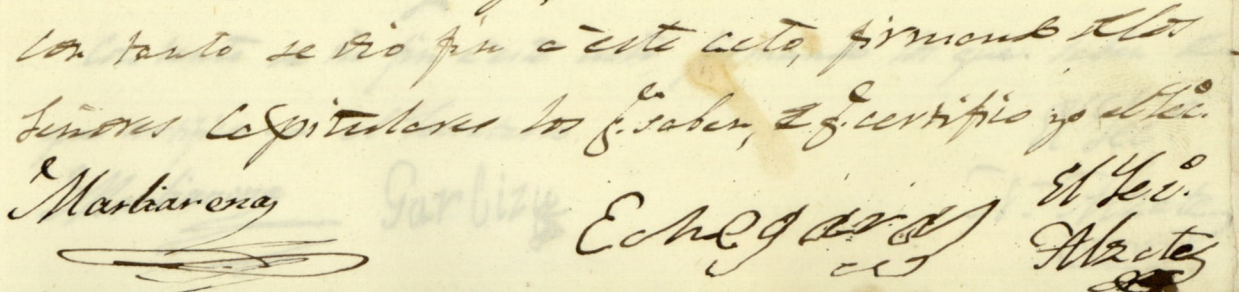 Con tanto se dio fin á este acto, firmando de los
Señores Capitulares los q.e saben, de q.e certifico yo el Sec.o
Martiarena Echegaray El Sec.o
Alzate